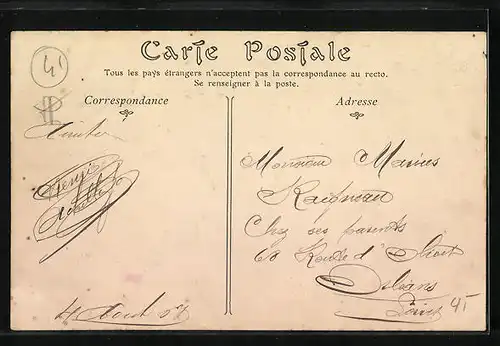 41
Carte Postale
Tous les pays étrangers n'acceptent pas la correspondance au recto.
Se renseigner à la poste.
Correspondance
Adresse
Monsieur Marius
Kaufman
Chez ses parents
68 Route d'
Orléans
Loiret 45
4 Août 07